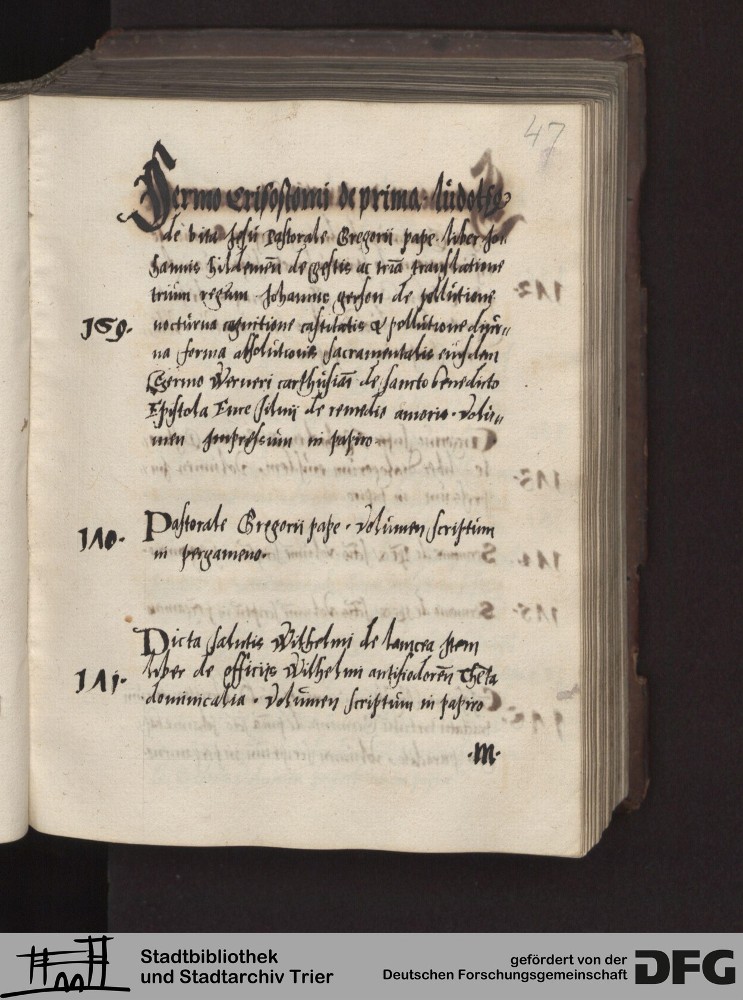 47
Sermo Crisostomi de prima. ludolfg
de vita Jesu Pastorale Gregorii pape. liber Jo-
hannis hildemen̄ de gestis ac triā translatione
trium regum Johannis gerson de pollutione
159. nocturna cognitione castitatis & pollutione diur„
na forma absolutionis sacramentalis eiusdem
Sermo Werneri carthusiā de sancto benedicto
Epistola Enee silvii de remedio amoris. Volu„
men Impressum in papiro
140. Pastorale Gregorii pape. Volumen scriptum
in pergameno.
141. Dicta salutis Wilhelmi de lancea Item
liber de officiis Wilhelmi antisiodoreñ
dominicalia. Volumen scriptum in papiro
.m.
Stadtbibliothek
und Stadtarchiv Trier
gefördert von der
Deutschen Forschungsgemeinschaft
DFG